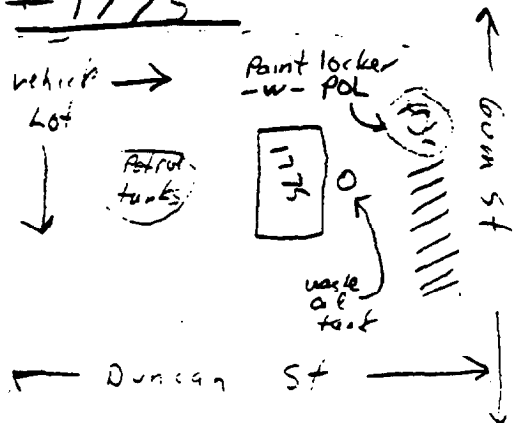 # 1775
vehicle
Lot
Paint locker
-w- POL
Petrol
tanks
1775
waste
oil
tank
Duncan St